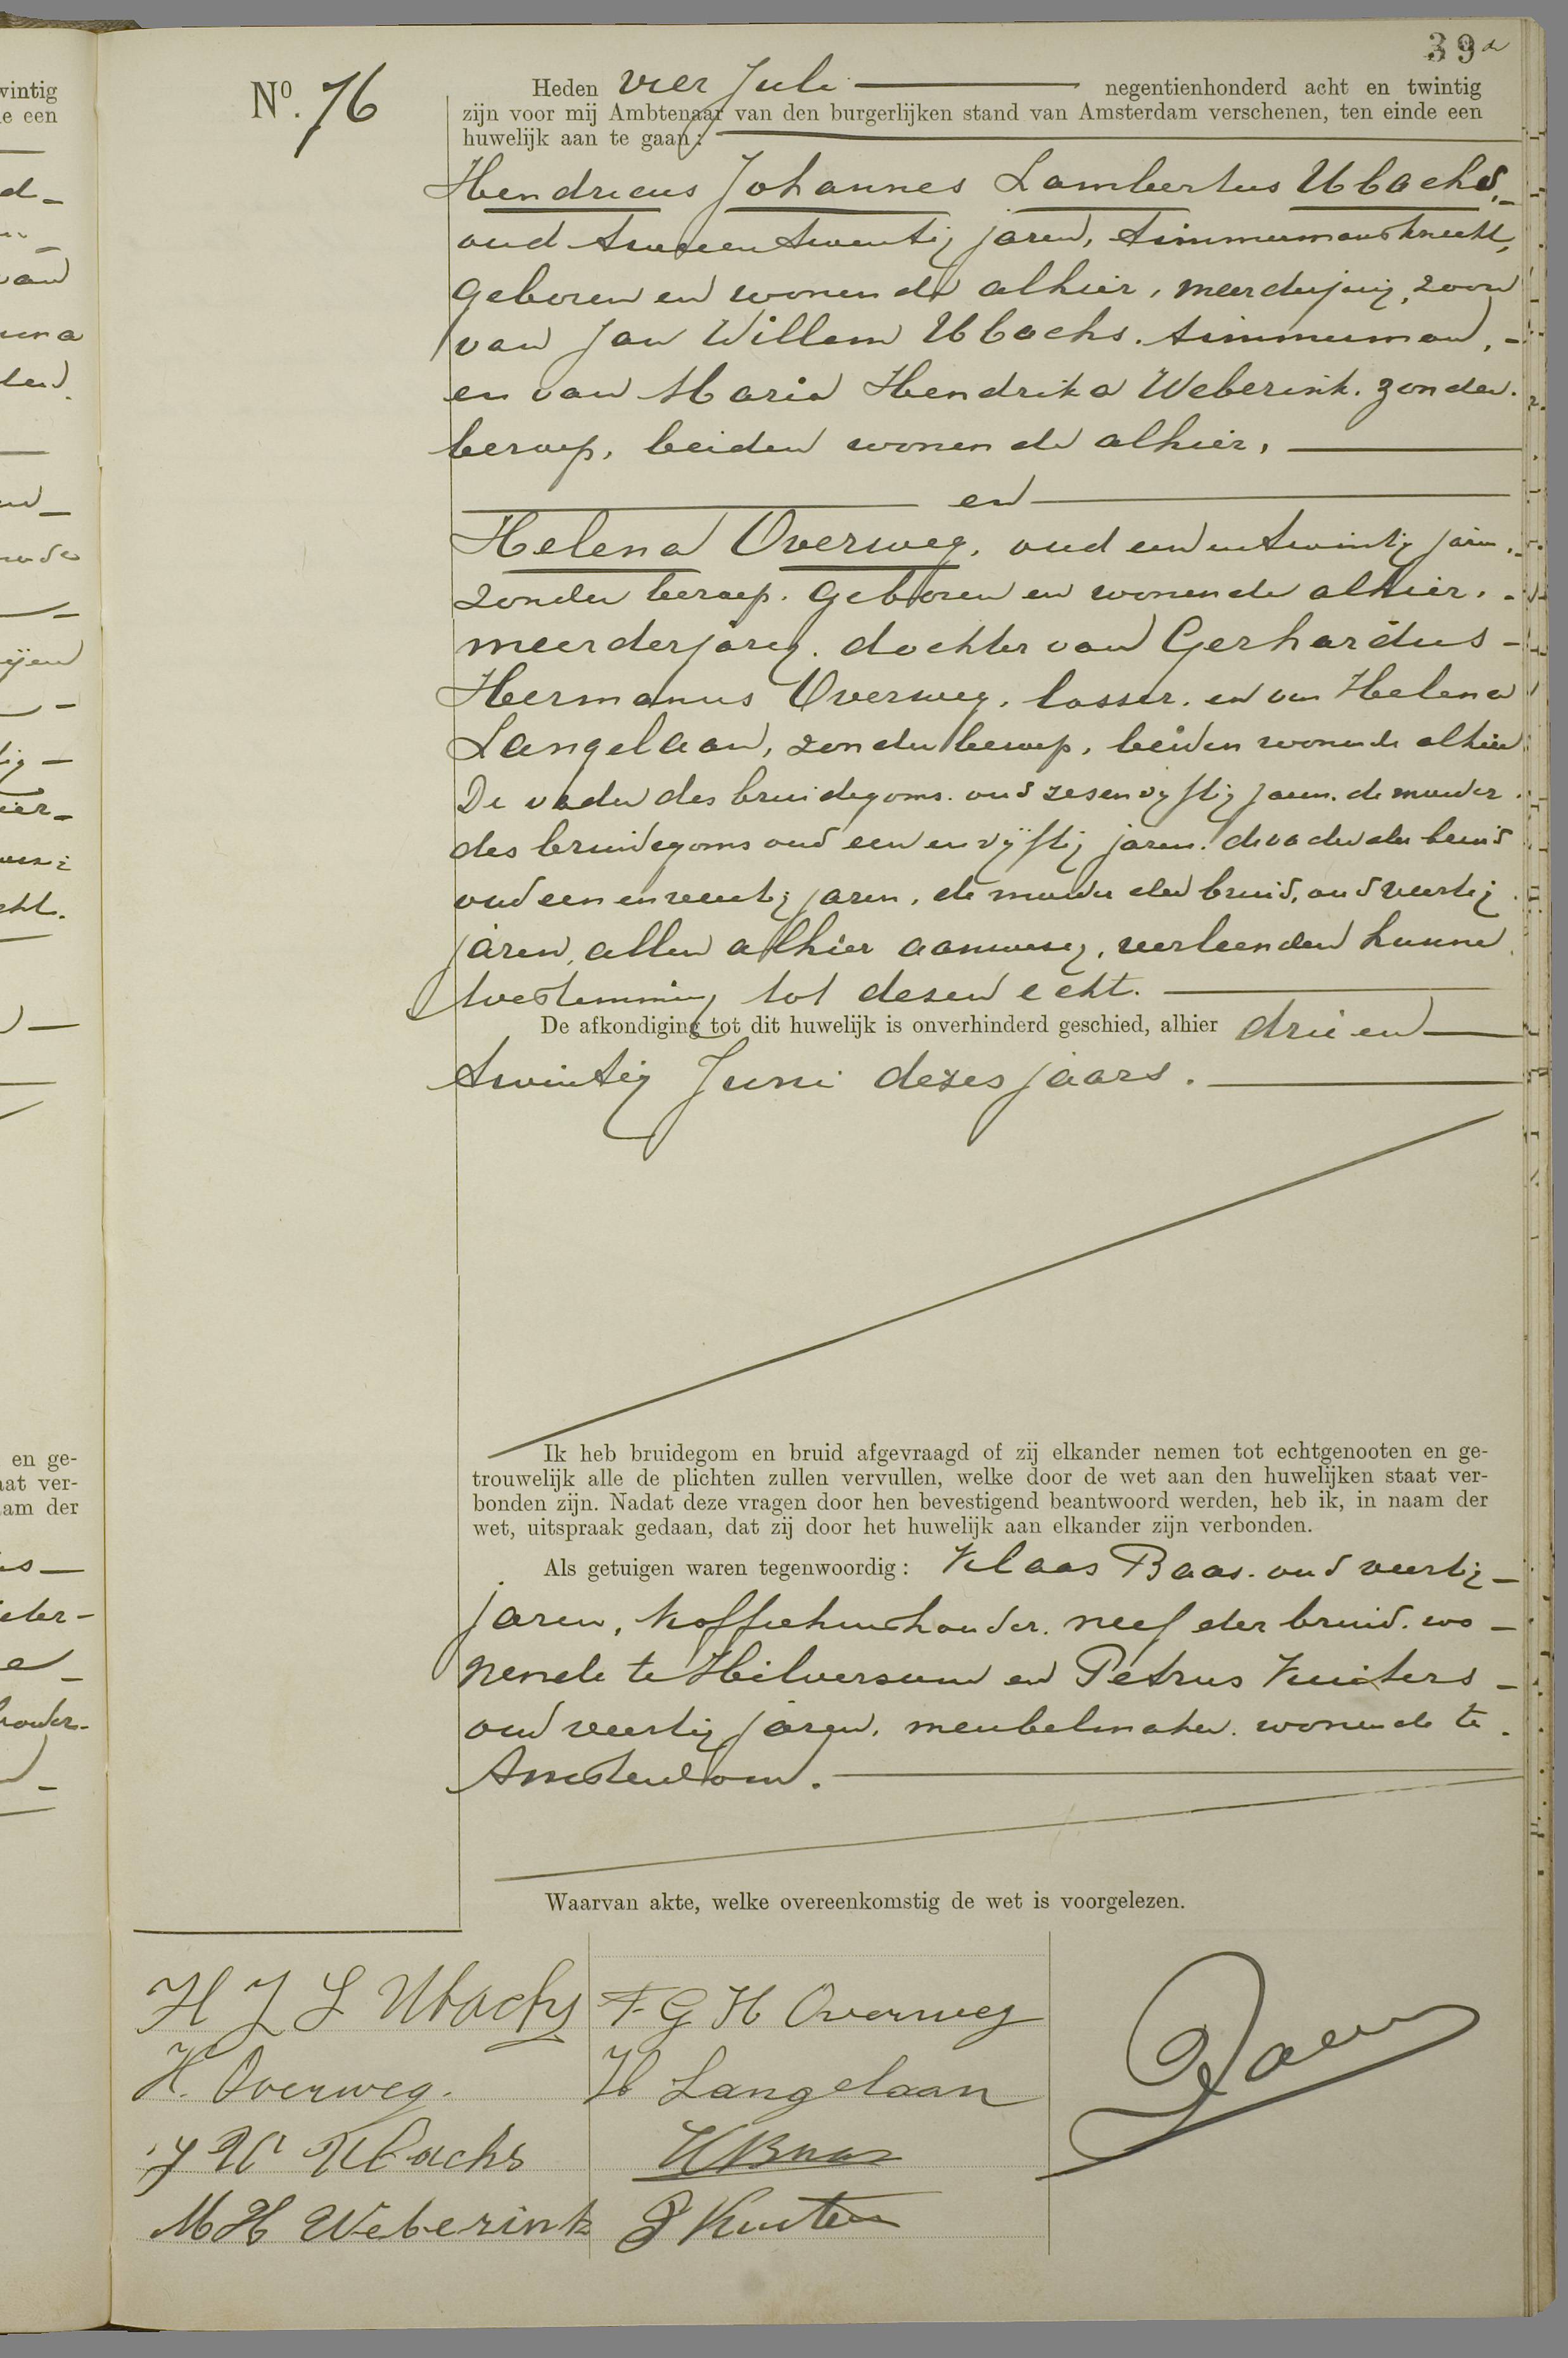 39a
No. 76
Heden vier Juli negentienhonderd acht en twintig
zijn voor mij Ambtenaar van den burgerlijken stand van Amsterdam verschenen, ten einde een
huwelijk aan te gaan:
Hendricus Johannes Lambertus Ubachs,
oud tweeentwintig jaren, timmermansknecht,
geboren en wonende alhier, meerderjarig, zoon
van Jan Willem Ubachs, timmerman,
en van Maria Hendrika Weberink, zonder
beroep, beiden wonende alhier,
en
Helena Overweg, oud eenentwintig jaren,
zonder beroep, geboren en wonende alhier,
meerderjarig, dochter van Gerhardus
Hermanus Overweg, losser, en van Helena
Langelaan, zonder beroep, beiden wonende alhier
De vader des bruidegoms, oud zesenvijftig jaren, de moeder
des bruidegoms oud een en vijftig jaren, de vader der bruid
oud een en veertig jaren, de moeder der bruid, oud veertig
jaren, allen alhier aanwezig, verleenden hunne
toestemming tot dezen echt.
De afkondiging tot dit huwelijk is onverhinderd geschied, alhier drie en
twintig Juni dezes jaars.
Ik heb bruidegom en bruid afgevraagd of zij elkander nemen tot echtgenooten en ge-
trouwelijk alle de plichten zullen vervullen, welke door de wet aan den huwelijken staat ver-
bonden zijn. Nadat deze vragen door hen bevestigend beantwoord werden, heb ik, in naam der
wet, uitspraak gedaan, dat zij door het huwelijk aan elkander zijn verbonden.
Als getuigen waren tegenwoordig: Klaas Baas, oud veertig
jaren, koffiehuishouder, neef der bruid, wo-
nende te Hilversum en Petrus Kuiters
oud veertig jaren, meubelmaker, wonende te
Amsterdam.
Waarvan akte, welke overeenkomstig de wet is voorgelezen.
H J L Ubachs
F G H Overweg
H. Overweg.
H Langelaan
J W Ubachs
K Baas
M H Weberink
P Kuiters